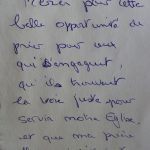 Merci pour cette
belle opportunité de
prier pour ceux
qui s'engagent,
qu'ils trouvent
la voie juste pour
servir notre Eglise,
et que ma prière